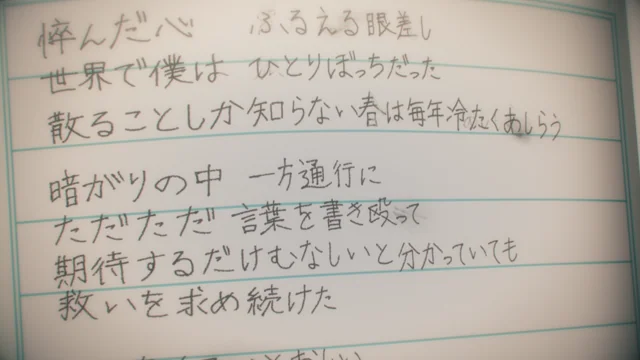 悴んだ心 ふるえる眼差し
世界で僕は ひとりぼっちだった
散ることしか知らない春は毎年冷たくあしらう
暗がりの中 一方通行に
ただただ 言葉を書き殴って
期待するだけむなしいと分かっていても
救いを求め続けた